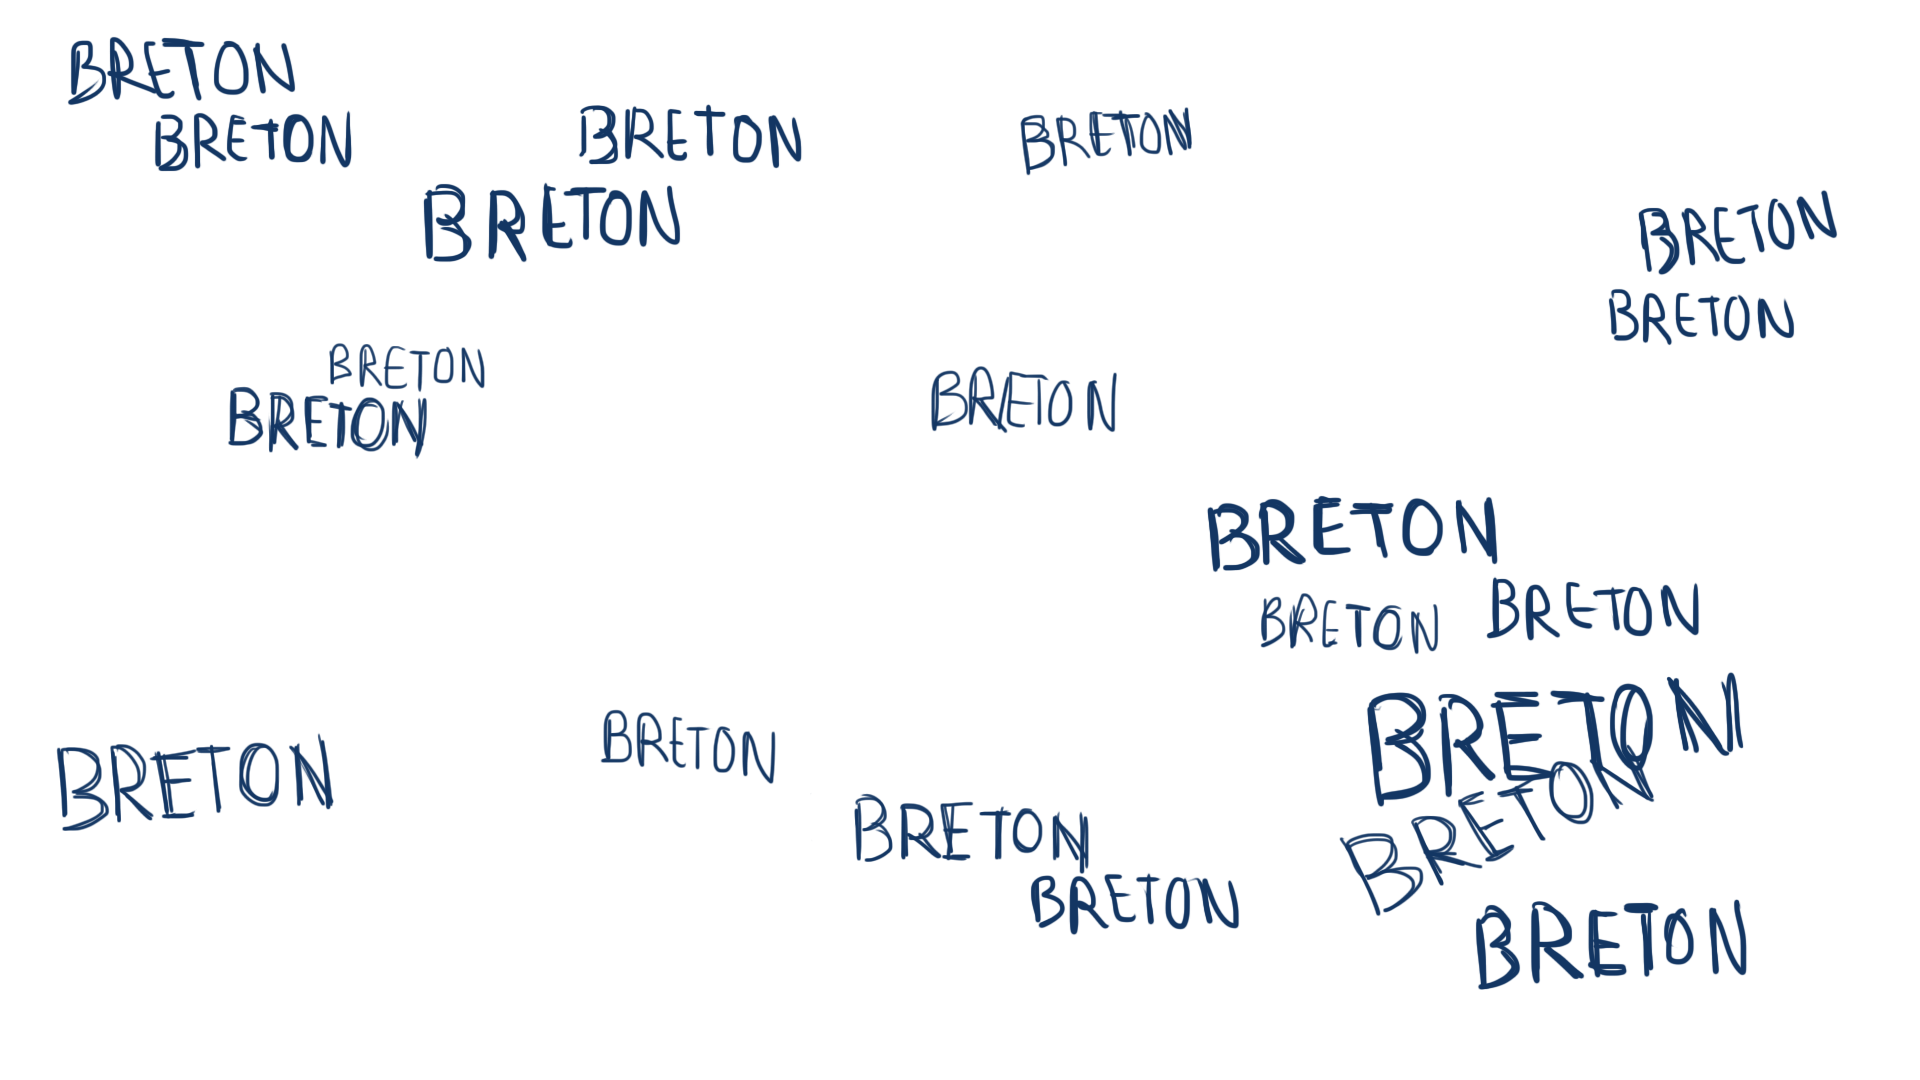 BRETON
BRETON
BRETON
BRETON
BRETON
BRETON
BRETON
BRETON
BRETON
BRETON
BRETON
BRETON
BRETON
BRETON
BRETON
BRETON
BRETON
BRETON
BRETON
BRETON